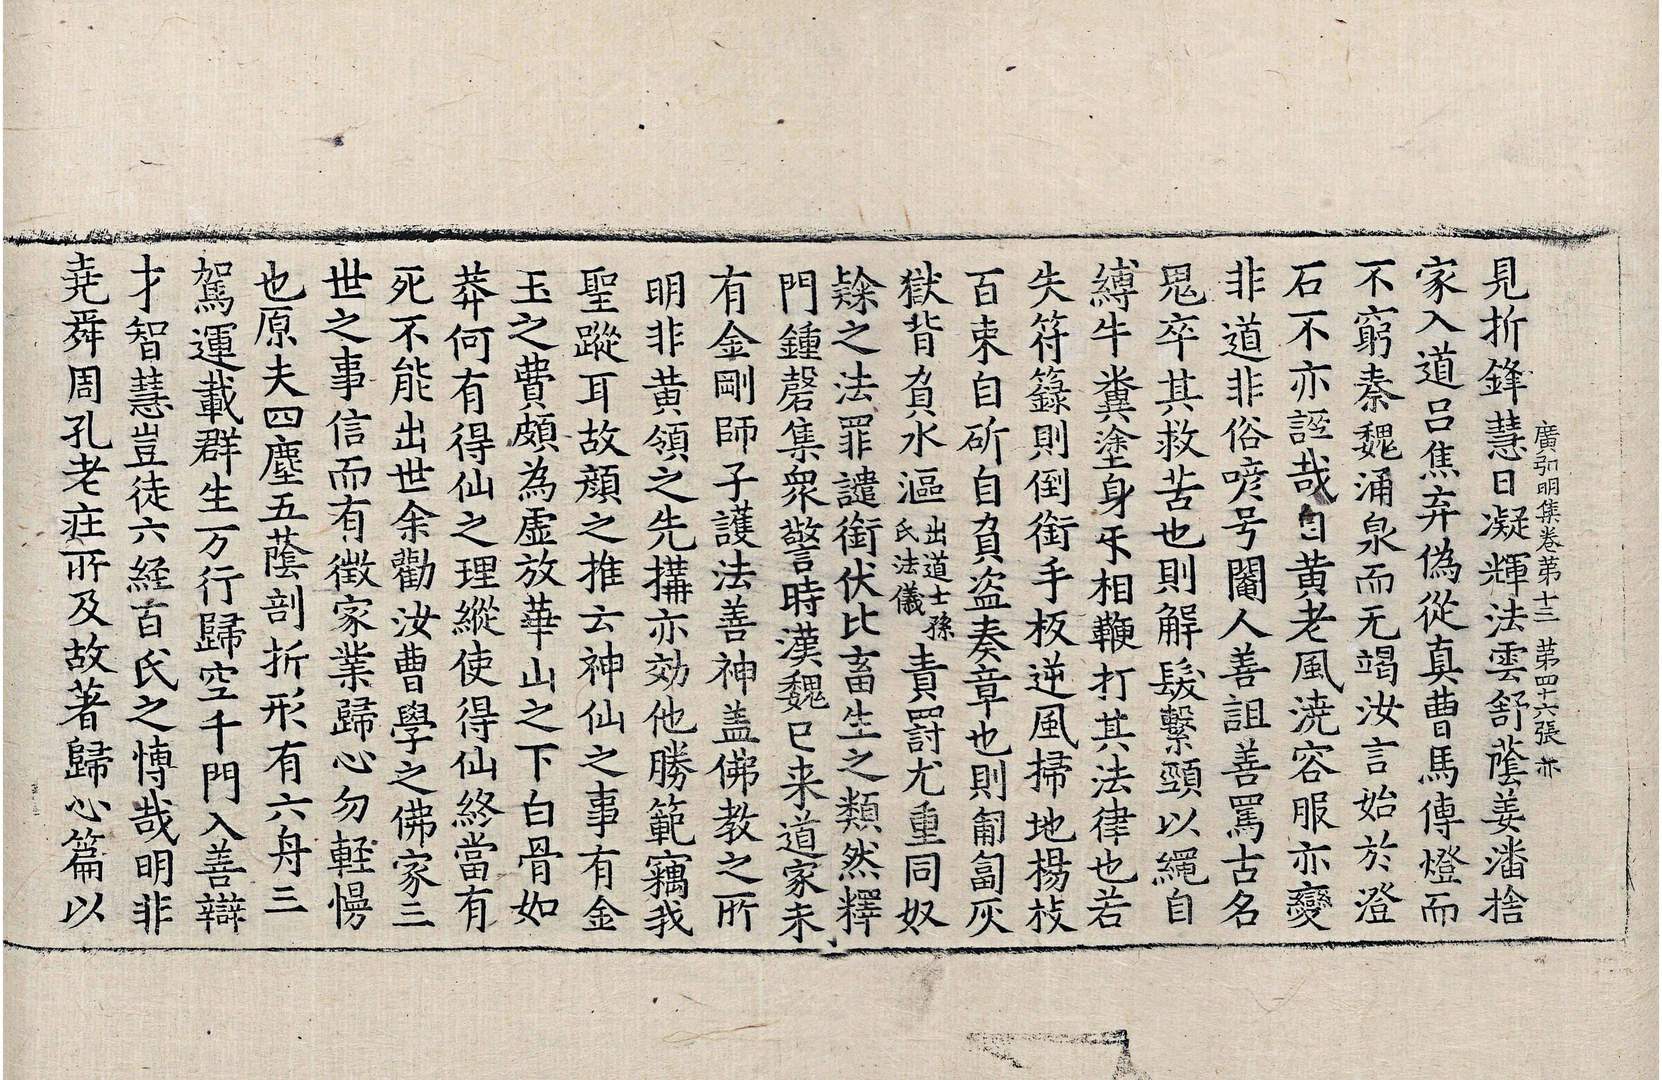 廣弘明集卷第十三 第四十六張 亦
見折鋒慧日凝輝法雲舒蔭姜潘捨
家入道呂焦弃偽從真曹馬傳燈而
不窮秦魏涌泉而无竭汝言始於澄
石不亦誣哉自黃老風澆容服亦變
非道非俗喭号闍人善詛善罵古名
鬼卒其救苦也則解髮繫頸以繩自
縛牛糞塗身㸦相鞭打其法律也若
失符籙則倒銜手板逆風掃地楊枝
百束自斫自負盜奏章也則匍匐灰
獄背負水漚出道士孫氏法儀責罰尤重同奴
隸之法罪譴銜伏比畜生之類然釋
門鍾磬集衆警時漢魏已来道家未
有金剛師子護法善神盖佛教之所
明非黃領之先搆亦効他勝範竊我
聖蹤耳故顔之推云神仙之事有金
玉之費頗為虛放華山之下白骨如
莽何有得仙之理縱使得仙終當有
死不能出世余勸汝曹學之佛家三
世之事信而有徵家業歸心勿輕慢
也原夫四塵五蔭剖折形有六舟三
駕運載群生万行歸空千門入善辯
才智慧豈徒六経百氏之愽哉明非
堯舜周孔老疘所及故著歸心篇以